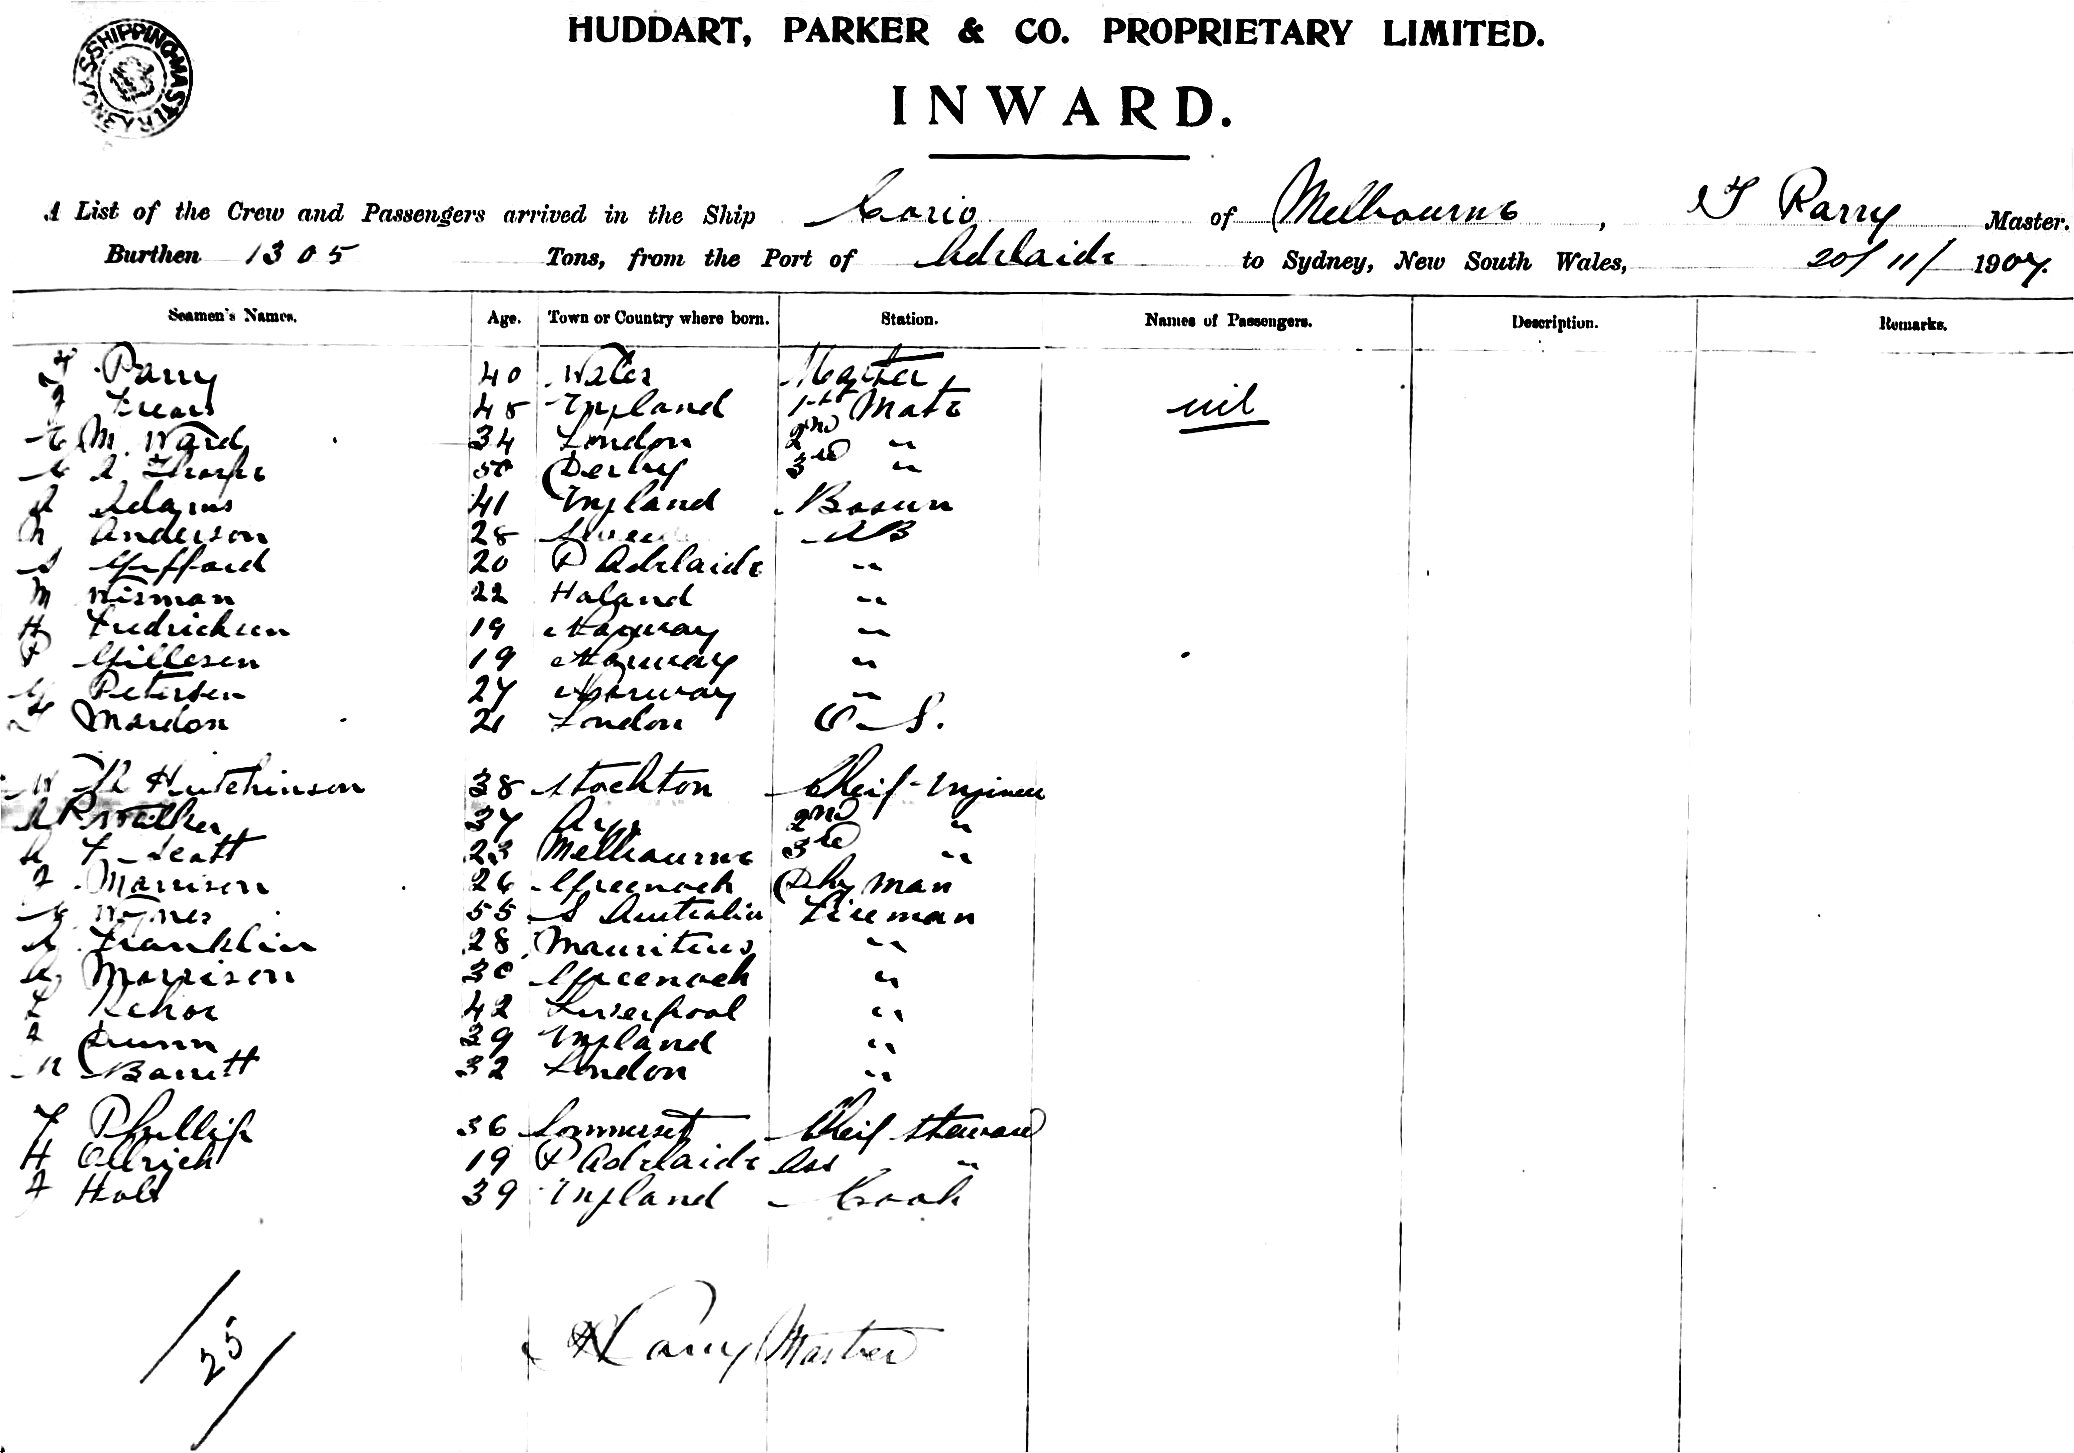 HUDDART, PARKER & CO. PROPRIETARY LIMITED.
SHIPPING MASTER SYDNEY
INWARD.
A List of the Crew and Passengers arrived in the Ship Corio of Melbourne, T Parry Master.
Burthen 1305 Tons, from the Port of Adelaide to Sydney, New South Wales, 20/11/1907.
Seamen's Names. Age. Town or Country where born. Station. Names of Passengers. Description. Remarks.
Parry 40 Wales Master
48 England 1st Mate nil
M. Ward 34 London 2nd "
Thorpe 50 Derby 3rd "
Adams 41 England Bosun
Anderson 28 AB
S Gifford 20 P Adelaide "
M Wisman 22 Holand "
H Fredricksen 19 Norway "
P Gillesen 19 Norway "
G Petersen 27 Norway "
Mardon 21 London O. S.
W R Hutchinson 38 Stockton Cheif Engineer
R Walker 37 Ayr 2nd "
F Scott 23 Melbourne 3rd "
J Morrison 26 Greenock Dky man
55 S Australia Fireman
Franklin 28 Mauritius "
Morrison 30 Greenock "
42 Liverpool "
J Dunn 39 England "
M Barrett 32 London "
T Phillip 36 Sommerset Cheif Steward
H Ellrich 19 P Adelaide Ass "
J Holt 39 England Cook
25
Parry Master